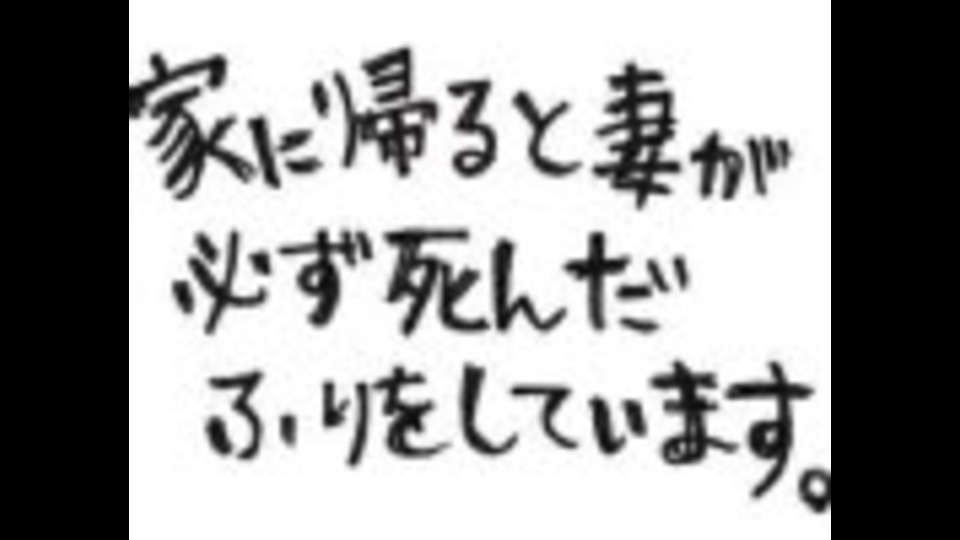 家に帰ると妻が
必ず死んだ
ふりをしています。